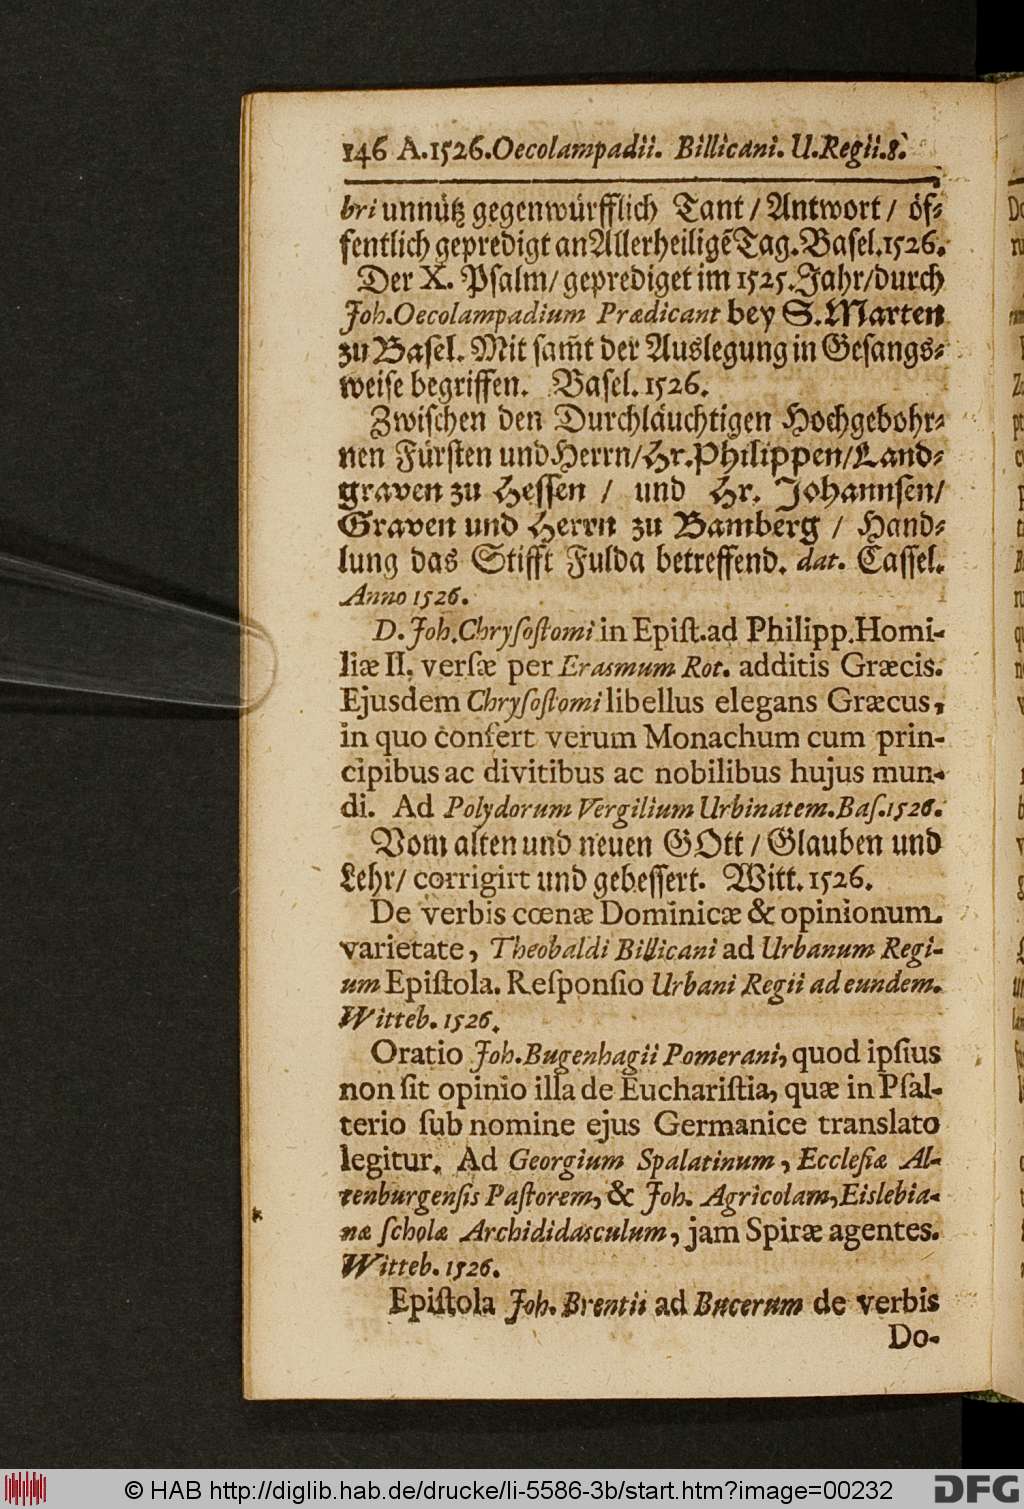 146 A. 1526. Oecolampadii. Billicani. U. Regii. 8.
bri unnütz gegenwürfflich Tant / Antwort / öf-
fentlich gepredigt an Allerheiligē Tag. Basel. 1526.
Der X. Psalm / geprediget im 1525. Jahr / durch
Joh. Oecolampadium Prædicant bey S. Marten
zu Basel. Mit sam̃t der Auslegung in Gesangs-
weise begriffen. Basel. 1526.
Zwischen den Durchläuchtigen Hochgebohr-
nen Fürsten und Herrn / Hr. Philippen / Land-
graven zu Hessen / und Hr. Johannsen /
Graven und Herrn zu Bamberg / Hand-
lung das Stifft Fulda betreffend. dat. Cassel.
Anno 1526.
D. Joh. Chryſoſtomi in Epiſt. ad Philipp. Homi-
liæ II. verſæ per Erasmum Rot. additis Græcis.
Ejusdem Chryſoſtomi libellus elegans Græcus,
in quo confert verum Monachum cum prin-
cipibus ac divitibus ac nobilibus hujus mun-
di. Ad Polydorum Vergilium Urbinatem. Baſ. 1526.
Vom alten und neuen GOtt / Glauben und
Lehr / corrigirt und gebessert. Witt. 1526.
De verbis cœnæ Dominicæ & opinionum
varietate, Theobaldi Billicani ad Urbanum Regi-
um Epiſtola. Reſponſio Urbani Regii ad eundem.
Witteb. 1526.
Oratio Joh. Bugenhagii Pomerani, quod ipſius
non ſit opinio illa de Euchariſtia, quæ in Pſal-
terio ſub nomine ejus Germanice translato
legitur. Ad Georgium Spalatinum, Eccleſiæ Al-
tenburgenſis Paſtorem, & Joh. Agricolam, Eislebia-
næ ſcholæ Archididasculum, jam Spiræ agentes.
Witteb. 1526.
Epiſtola Joh. Brentii ad Bucerum de verbis
Do-
© HAB http://diglib.hab.de/drucke/li-5586-3b/start.htm?image=00232
DFG